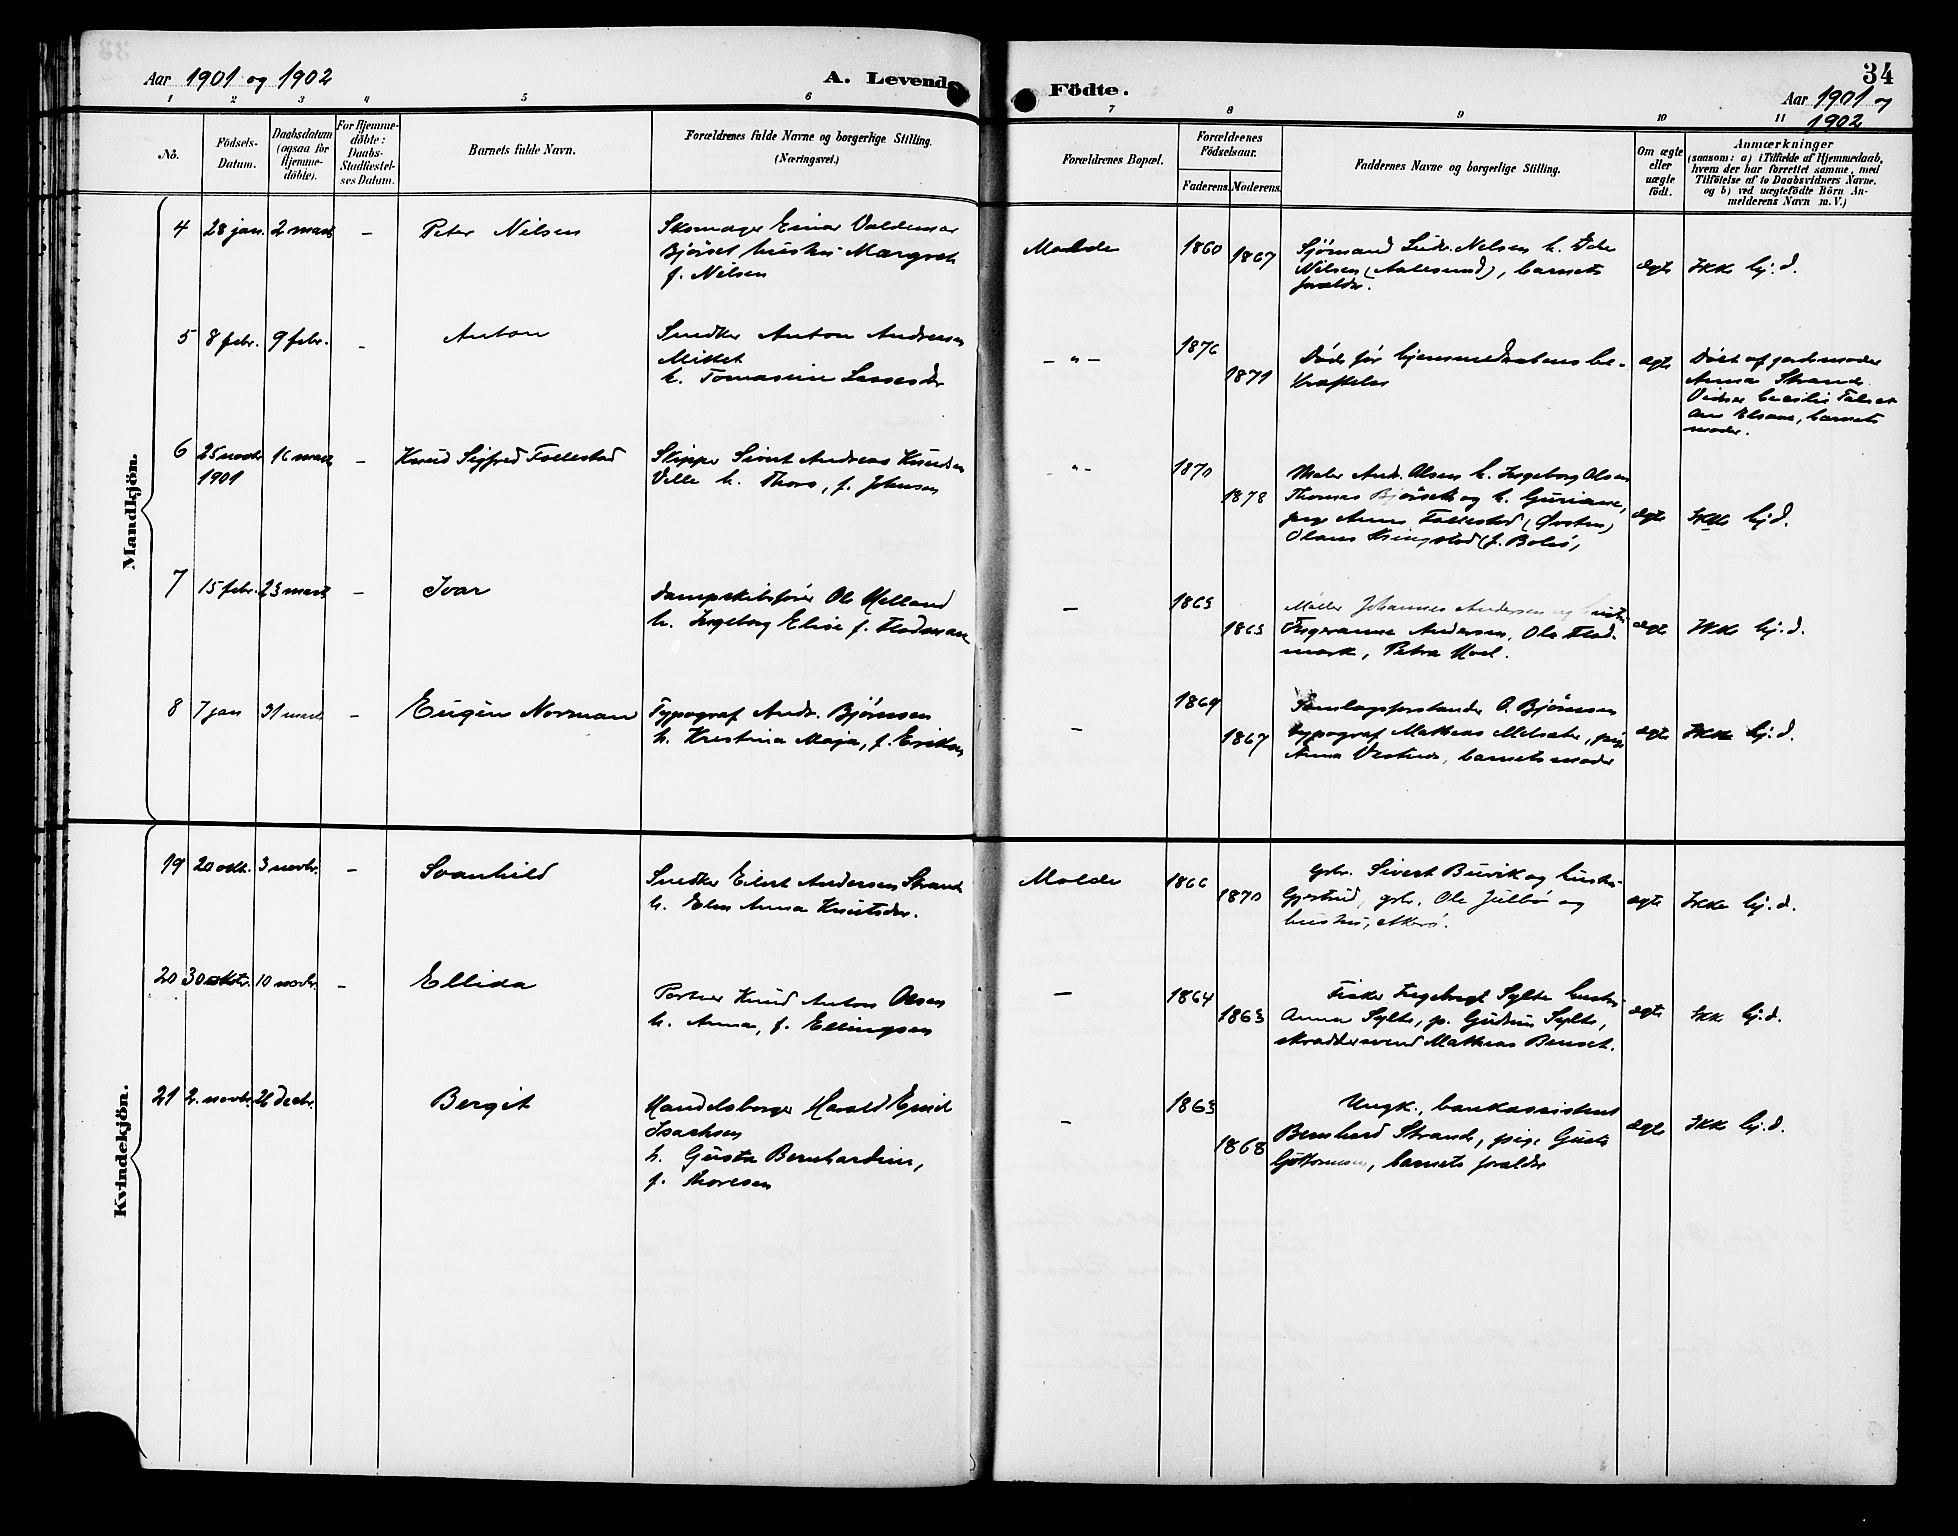 Aar 1901 og 1902
A. Levende
Födte.
34
Aar 1901 og
1902
1 2 3 4 5 6 7 8 9 10 11
No.
Födsels-
Datum.
Daabsdatum
(ogsaa for
Hjemme-
döbte).
For Hjemme-
döbte:
Daabs-
Stadfæstel-
ses Datum.
Barnets fulde Navn.
Forældrenes fulde Navne og borgerlige Stilling.
(Næringsvei.)
Forældrenes Bopæl.
Forældrenes
Födselsaar.
Faderens. Moderens.
Faddernes Navne og borgerlige Stilling.
Om ægte
eller
uægte
födt.
Anmærkninger
(saasom: a) i Tilfælde af Hjemmedaab,
hvem der har forrettet samme, med
Tilföielse af to Daabsvidners Navne.
og b) ved uægtefödte Börn An-
melderens Navn m. V.)
Mandkjön.
4 28 jan. 2 mars – Peter Nilsen
Skomager Einar Valdemar
Bjørset hustru Margreth
f. Nilsen
Molde 1860 1867
Sjømand Ludv. Nelsen h.
Nilsen (Aalesund), barnets
forældre.
ægte Ikke hj.d.
5 8 febr. 9 febr. – Anton
Snedker Anton Andersen
Mittet
h. Tomasine Lassesdr
– " – 1876 1871
Døde før hjemmedaabens be-
kræftelse
ægte
Døbt af jordemoder
Anna Strande
barnets
moder.
6 25 novbr 16 mars – Knud Sigfred Follestad
1901
Skipper Sivert Andreas Knudsen
Velle h. Thora, f. Johnsen
– " – 1870 1878
Maler And. Olsen h. Ingeborg Olsen
Thomas Bjørset og h. Guriane,
pige Anne Follestad (Ørsten)
Olaus Ringstad (f. Bolsø,
ægte Ikke hj.d.
7 15 febr. 23 mars – Ivar
Dampskibsfører Ole Helland
h. Ingeborg Elise f. Flodmark
– 1863 1863
Møller Johannes Andersen og hustru
Ingeranna Andersen, Ole Flod-
mark, Petra Hoel.
ægte Ikke hj.d.
8 7 jan 31 mars – Eugen Norman
Typograf Andr. Bjørnsen
h. Kristina Maja, f. Eriksen
– 1869 1867
Samlagsforstander O. Bjørnsen
typograf Mathias Melsæter, pige
Anna Vestnes, barnets moder
ægte Ikke hj.d.
Kvindekjön.
19 20 okt. 3 novbr. – Svanhild
Snedker Eilert Andersen Strand
h. Elen Anna Knutsdr.
Molde 1866 1870
gbr. Sivert Buvik og hustru
Gjertrud, gbr. Ole Julbø og
hustru, Akerø.
ægte Ikke hj.d.
20 30 oktr. 10 novbr. – Ellida
Portner Knud Anton Olsen
h. Anna, f. Ellingsen
– 1864 1863
Fisker Ingebrigt Sylte hustru
Anna Sylte, p. Gudrun Sylte,
skræddersvend Mathias Bruset.
ægte Ikke hj.d.
21 2. novbr. 26 decbr. Bergit
Handelsborger Harald Emil
Isachsen
h. Gusta Bernhardine,
f. Thoresen
– 1863 1868
Ungk., bankassistent
Bernhard Strande, pige Gusta
Guttormsen, barnets forældre
ægte Ikke hj.d.